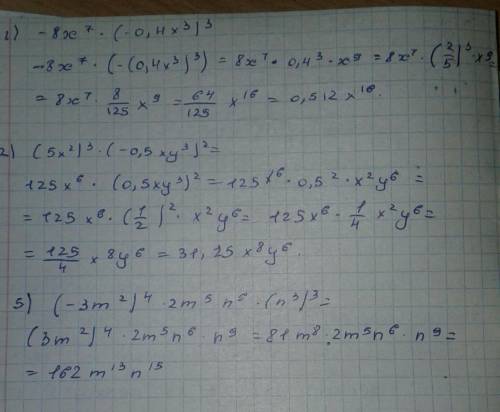 1) -8x⁷ · (-0,4x³)³
-8x⁷ · (-(0,4x³)³) = 8x⁷ · 0,4³ · x⁹ = 8x⁷ · (2/5)³ · x⁹=
= 8x⁷ · 8/125 x⁹ = 64/125 x¹⁶ = 0,512x¹⁶.
2) (5x²)³ · (-0,5xy³)² =
125x⁶ · (0,5xy³)² = 125x⁶ · 0,5² · x²y⁶ =
= 125x⁶ · (1/2)² · x²y⁶ = 125x⁶ · 1/4 x²y⁶ =
= 125/4 x⁸y⁶ = 31,25x⁸y⁶.
5) (-3m²)⁴ · 2m⁵n⁶ · (n³)³ =
(3m²)⁴ · 2m⁵n⁶ · n⁹ = 81m⁸ · 2m⁵n⁶ · n⁹ =
= 162m¹³n¹⁵